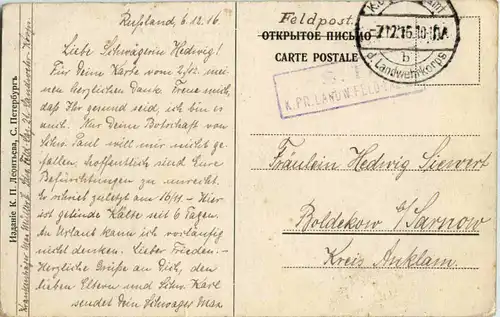 Rußland, 6.12.16.
Liebe Schwägerin Hedwig!
Für Deine Karte vom 2/12. mei-
nen herzlichen Dank. Freue mich,
daß Ihr gesund seid, ich bin es
auch. Nur Deine Botschaft von
Schw. Paul will mir nicht ge-
fallen, hoffentlich sind Eure
Befürchtungen zu unrecht.
Er schrieb zuletzt am 16/11. - Hier
ist gelinde Kälte seit 6 Tagen.
An Urlaub kann ich vorläufig
nicht denken. Lieber Frieden. -
Herzliche Grüße an Dich, den
lieben Eltern und Schw. Karl
sendet Dein Schwager Max
Изданіе К. П. Леонтьева, С. Петербургъ
Krankenträger Max
Landwehr-Korps
Feldpost.
ОТКРЫТОЕ ПИСЬМО
CARTE POSTALE
d. Landwehrkorps
b
K. PR. LANDW. FELD
Fräulein Hedwig Siewert
Boldekow b/Sarnow
Kreis Anklam.